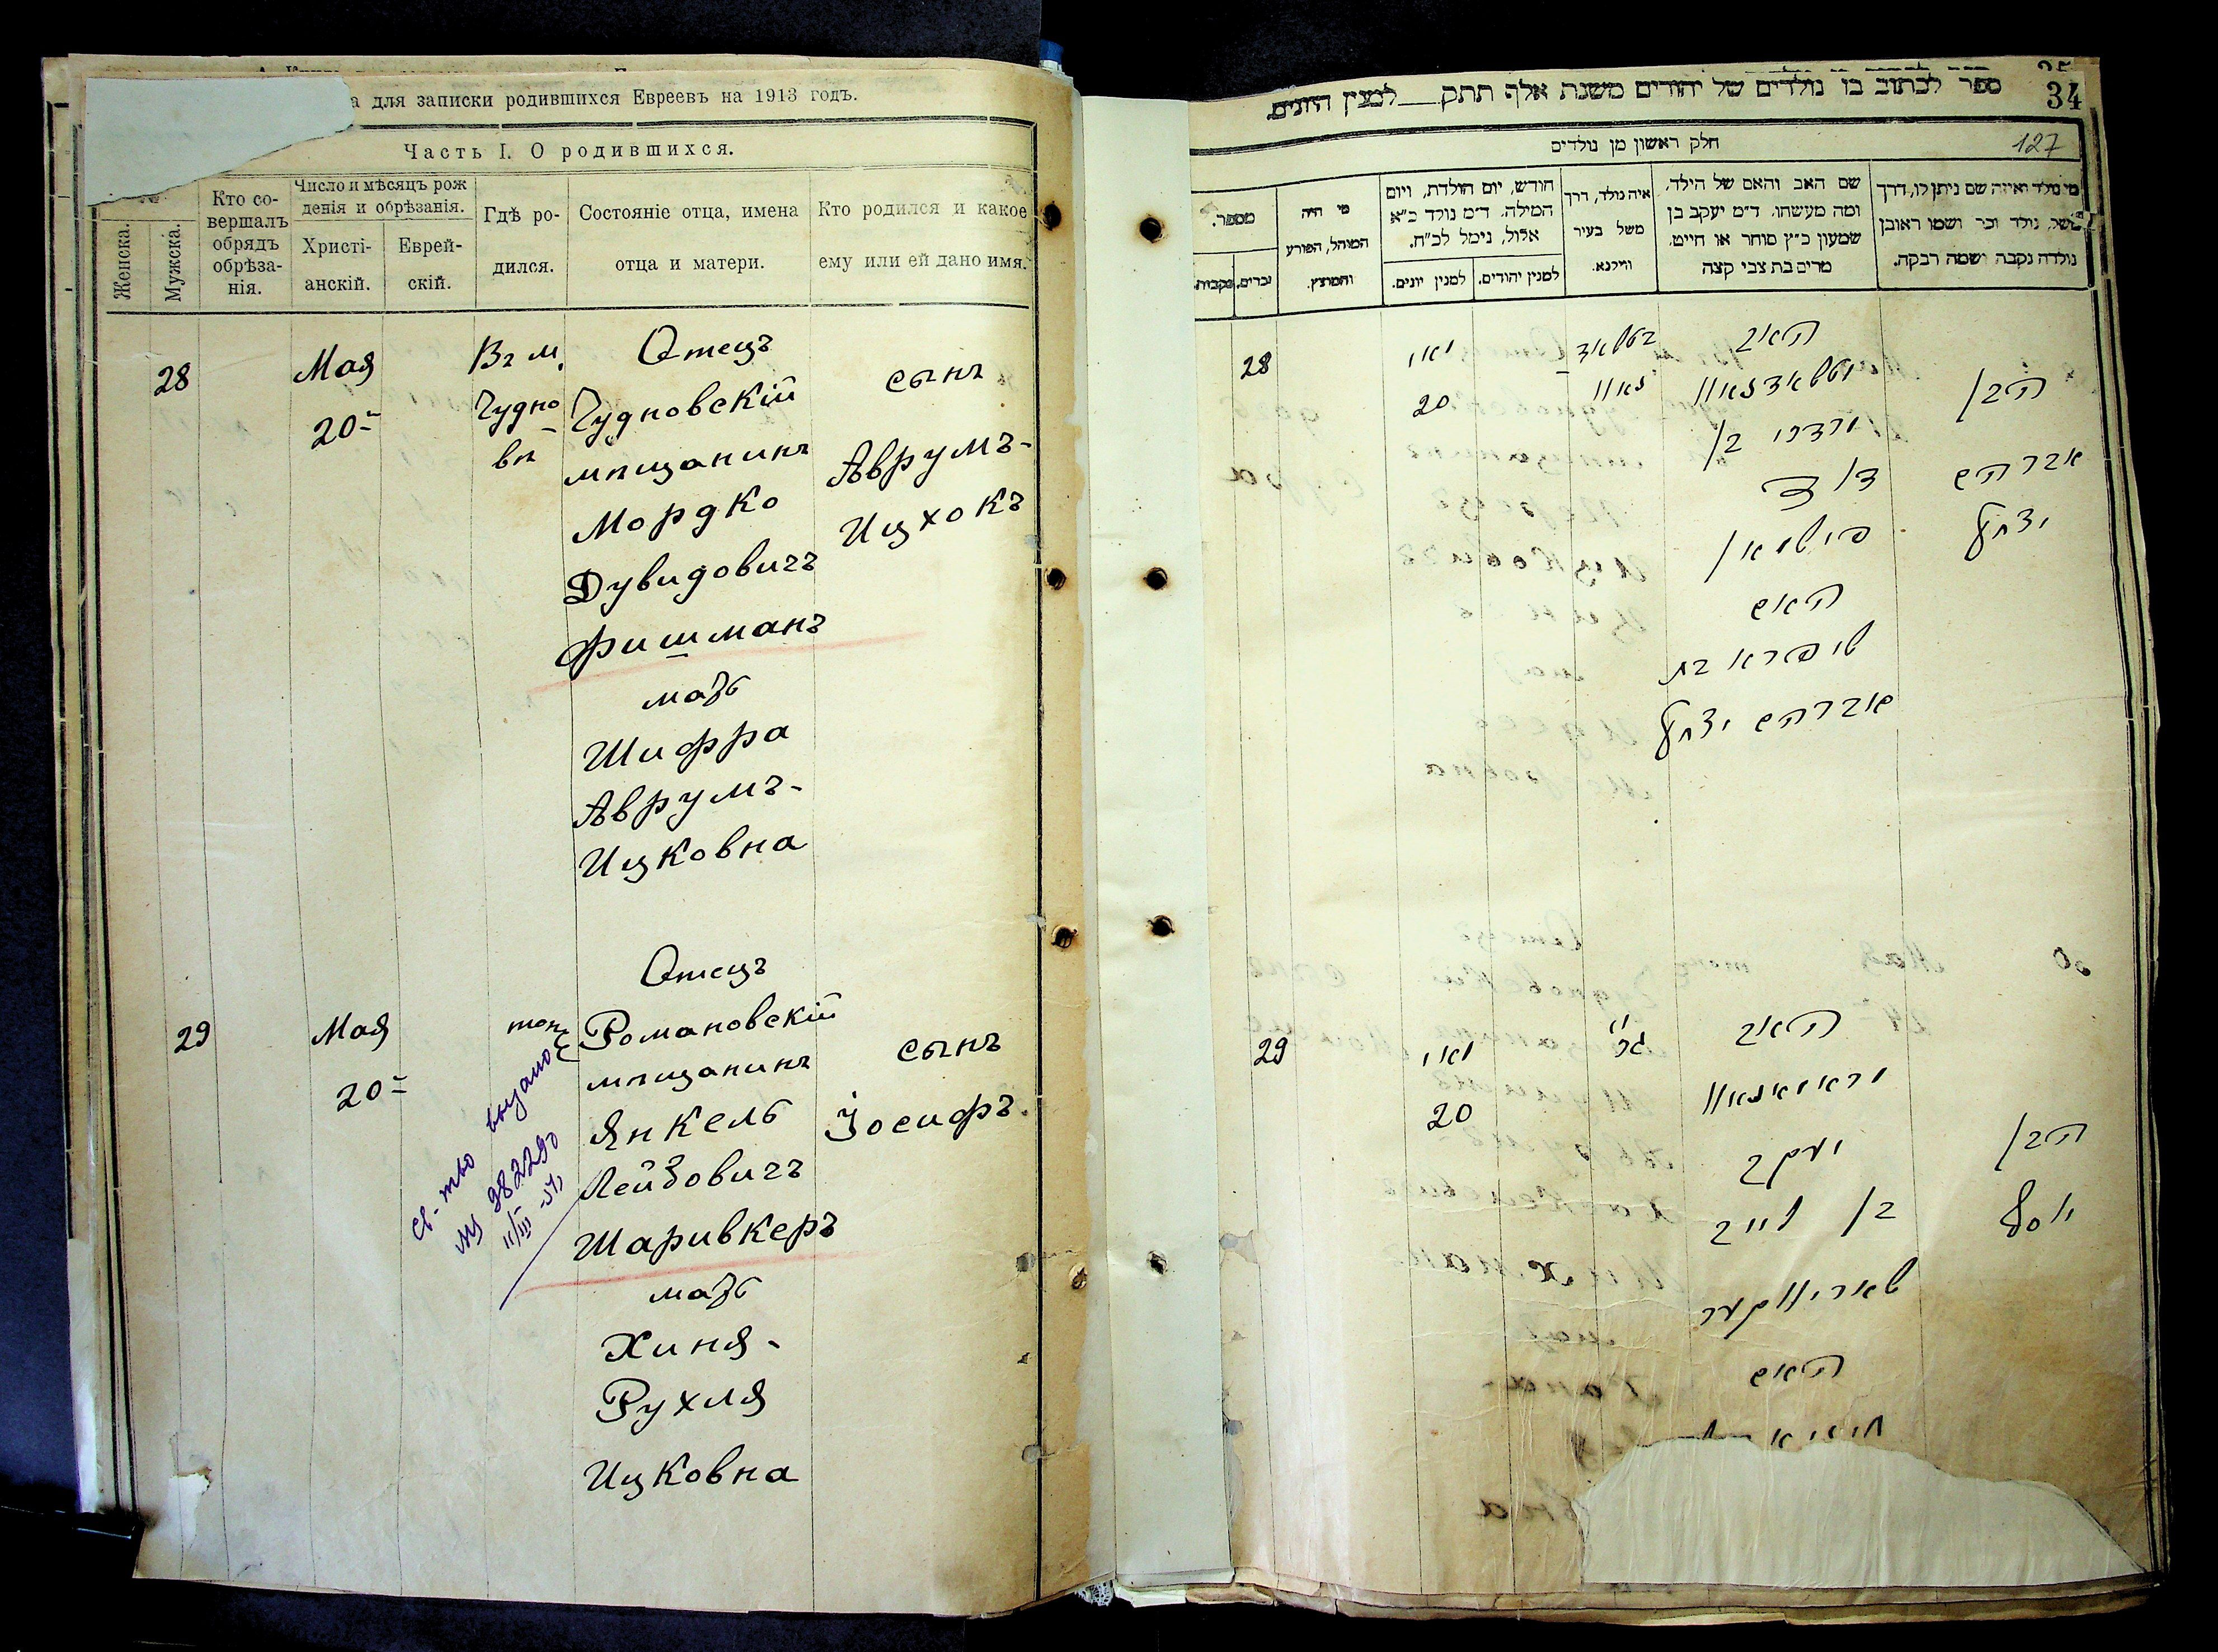 а для записки родившихся Евреевъ на 1913 годъ.
Часть I. О родившихся.
Женска.
Мужска.
Кто со-
вершалъ
обрядъ
обрѣза-
нія.
Число и мѣсяцъ рож
денія и обрѣзанія.
Христі-
анскій.
Еврей-
скій.
Гдѣ ро-
дился.
Состояніе отца, имена
отца и матери.
Кто родился и какое
ему или ей дано имя.
28
Мая
20
Въ м.
Чудно
вѣ
Отецъ
Чудновскій
мѣщанинъ
Мордко
Дувидовичъ
Фишманъ
мать
Шифра
Аврумъ-
Ицковна
сынъ
Аврумъ-
Ицхокъ
29
Мая
20
тоже
Отецъ
Романовскій
мѣщанинъ
Янкель
Лейбовичъ
Шаривкеръ
мать
Хиня-
Рухля
Ицковна
сынъ
Іосифъ.
св-тво выдано
№ 982290
ספר לכתוב בו נולדים של יהודים משנת אלף תתק למנין היונים.
34
חלק ראשון מן נולדים
127
מי נולד ואיזה שם ניתן לו, דרך
משל, נולד זכר ושמו ראובן
נולדה נקבה ושמה רבקה.
שם האב והאם של הילד,
ומה מעשהו. ד״מ יעקב בן
שמעון כ״ץ סוחר או חייט,
מרים בת צבי קצה
איה נולד, דרך
משל בעיר
ווילנא.
חודש, יום הולדת, ויום
המילה. ד״מ נולד כ״א
אלול, נימל לכ״ח.
למנין יהודים.
למנין יונים.
מי היה
המוהל, הפורע
והמוצץ.
מספר.
זכרים.
נקבות.
28
מאי
20
האב
מרדכי בן
דוד
פישמאן
האם
שיפרא בת
אברהם יצחק
הבן
אברהם
יצחק
29
מאי
20
האב
יעקב
בן לייב
שאריווקער
האם
הבן
יוסף